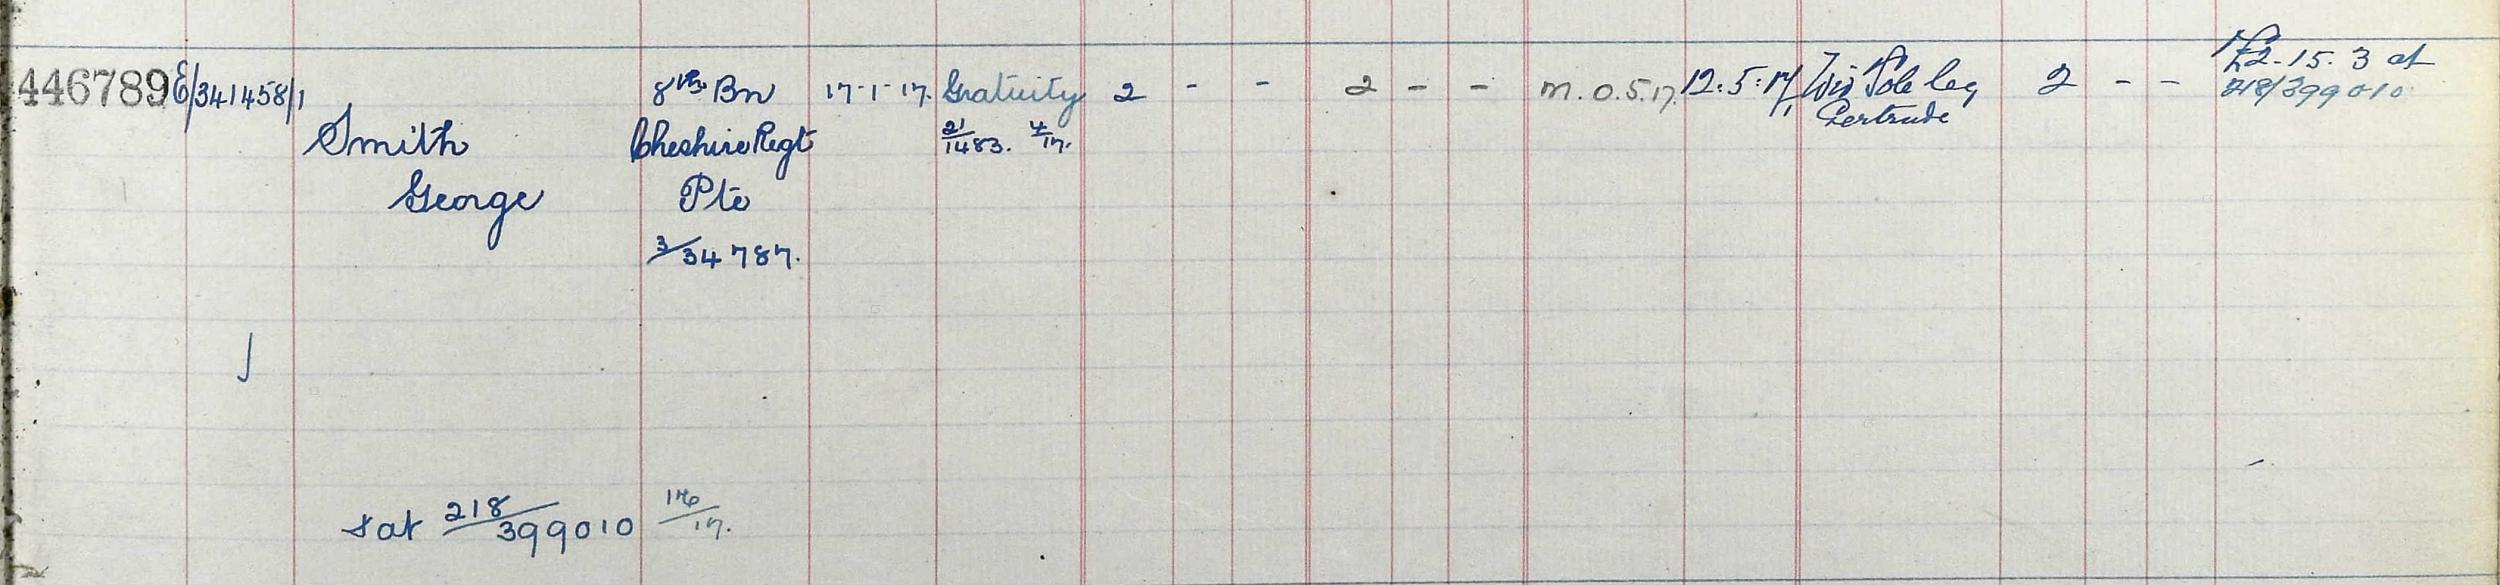 446789 E/341458/1 8th Bn 17-1-17. Gratuity 2 - - 2 - - M.O.5.17. 12.5.17 Wid Sole Leg 2 - - £2-15.3 at
Smith Cheshire Regt 21/1483. 4/17. Gertrude 218/399010
George Pte
3/34787.
& at 218/399010 17/17.